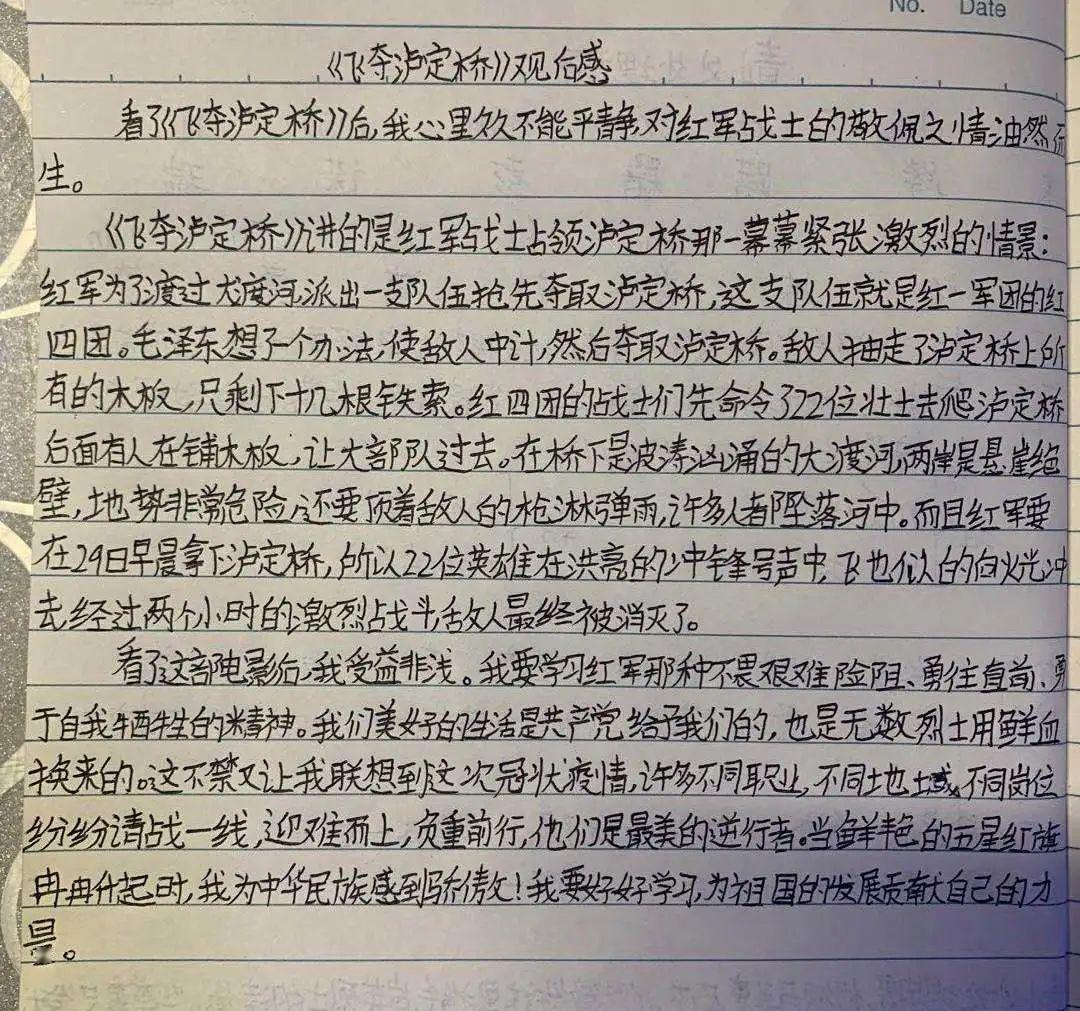 No. Date
《飞夺泸定桥》观后感
看了《飞夺泸定桥》后,我心里久久不能平静,对红军战士的敬佩之情油然而
生。
《飞夺泸定桥》讲的是红军战士占领泸定桥那一幕幕紧张激烈的情景:
红军为了渡过大渡河,派出一支队伍抢先夺取泸定桥,这支队伍就是红一军团的红
四团。毛泽东想了一个办法,使敌人中计,然后夺取泸定桥。敌人抽走了泸定桥上所
有的木板,只剩下十几根铁索。红四团的战士们先命令了22位壮士去爬泸定桥
后面有人在铺木板,让大部队过去。在桥下是波涛汹涌的大渡河,两岸是悬崖绝
壁,地势非常危险,还要顶着敌人的枪淋弹雨,许多人都坠落河中。而且红军要
在29日早晨拿下泸定桥,所以22位英雄在洪亮的冲锋号声中,飞也似的向火光冲
去,经过两个小时的激烈战斗,敌人最终被消灭了。
看了这部电影后,我受益非浅。我要学习红军那种不畏艰难险阻、勇往直前、勇
于自我牺牲的精神。我们美好的生活是共产党给予我们的,也是无数烈士用鲜血
换来的。这不禁又让我联想到这次冠状疫情,许多不同职业,不同地域,不同岗位
纷纷请战一线,迎难而上,负重前行,他们是最美的逆行者。当鲜艳的五星红旗
冉冉升起时,我为中华民族感到骄傲!我要好好学习,为祖国的发展贡献自己的力
量。